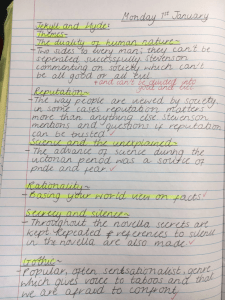 Monday 1st January
Jekyll and Hyde:
Themes-
The duality of human nature-
Two sides to every man; they can't be
seperated successfully. Stevenson
commenting on society which can't
be all good or all evil.
* and can't be divided into
good and evil
Reputation-
The way people are viewed by society
in some cases reputation matters
more than anything else Stevenson
mentions and questions if reputation
can be trusted.
Science and the unexplained-
The advance of science during the
victorian period was a source of
pride and fear
Rationality-
Basing your world view on facts!
Secrecy and silence-
Throughout the novella secrets are
kept. Repeated references to silence
in the novella are also made
Gothic-
Popular, often sensationalist, genre
which gives voice to taboos and that
we are afraid to confront.